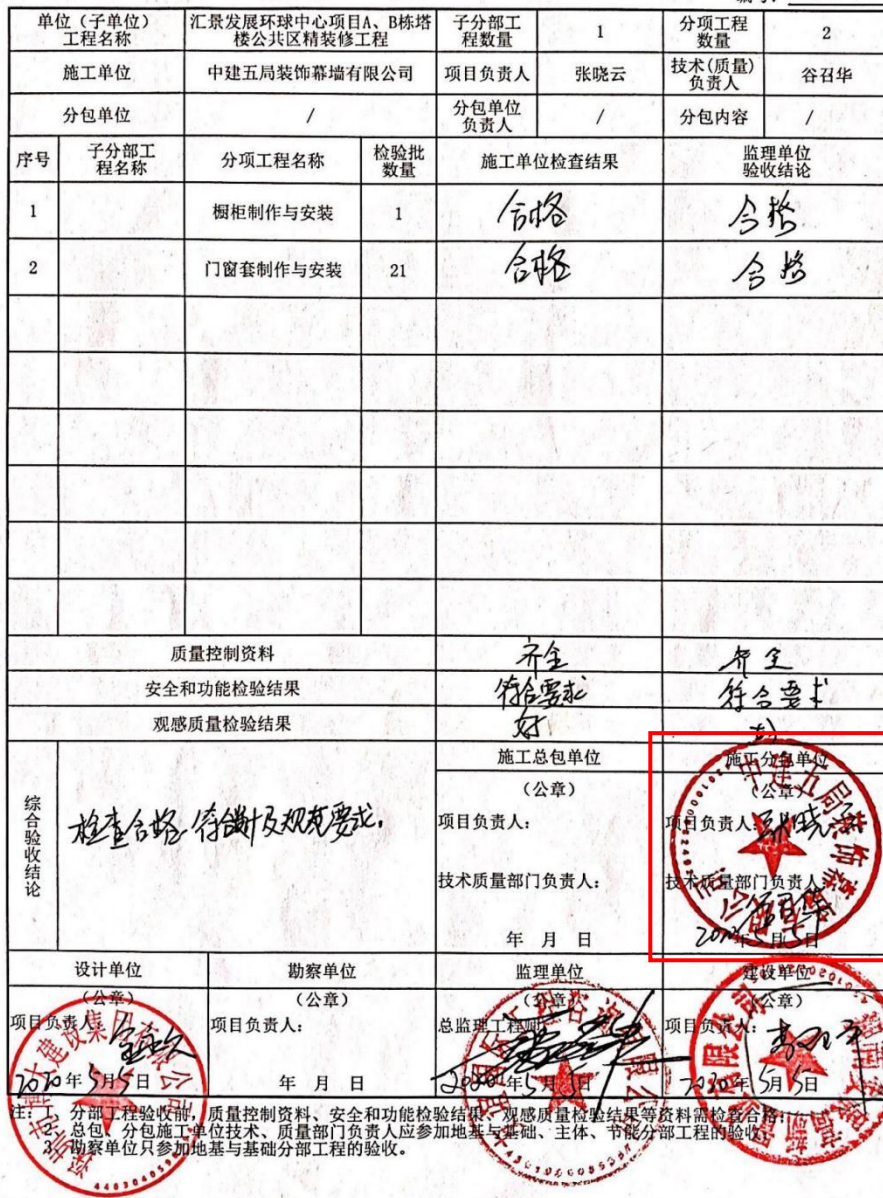 编号:
单位（子单位）工程名称 汇景发展环球中心项目A、B栋塔楼公共区精装修工程 子分部工程数量 1 分项工程数量 2
施工单位 中建五局装饰幕墙有限公司 项目负责人 张晓云 技术(质量)负责人 谷召华
分包单位 / 分包单位负责人 / 分包内容 /
序号 子分部工程名称 分项工程名称 检验批数量 施工单位检查结果 监理单位验收结论
1 橱柜制作与安装 1 合格 合格
2 门窗套制作与安装 21 合格 合格
质量控制资料 齐全 齐全
安全和功能检验结果 符合要求 符合要求
观感质量检验结果 好 好
综合验收结论 检查合格 符合设计及规范要求.
施工总包单位
（公章）
项目负责人：
技术质量部门负责人：
年 月 日
施工分包单位
（公章）
项目负责人：张晓云
技术质量部门负责人
2020年5月15日
设计单位 勘察单位 监理单位 建设单位
（公章） （公章） （公章） （公章）
项目负责人： 项目负责人： 总监理工程师： 项目负责人：
2020年5月15日 年 月 日 2020年5月15日 2020年5月15日
注：1、分部工程验收前，质量控制资料、安全和功能检验结果、观感质量检验结果等资料需检查合格；
2、总包、分包施工单位技术、质量部门负责人应参加地基与基础、主体、节能分部工程的验收；
3、勘察单位只参加地基与基础分部工程的验收。